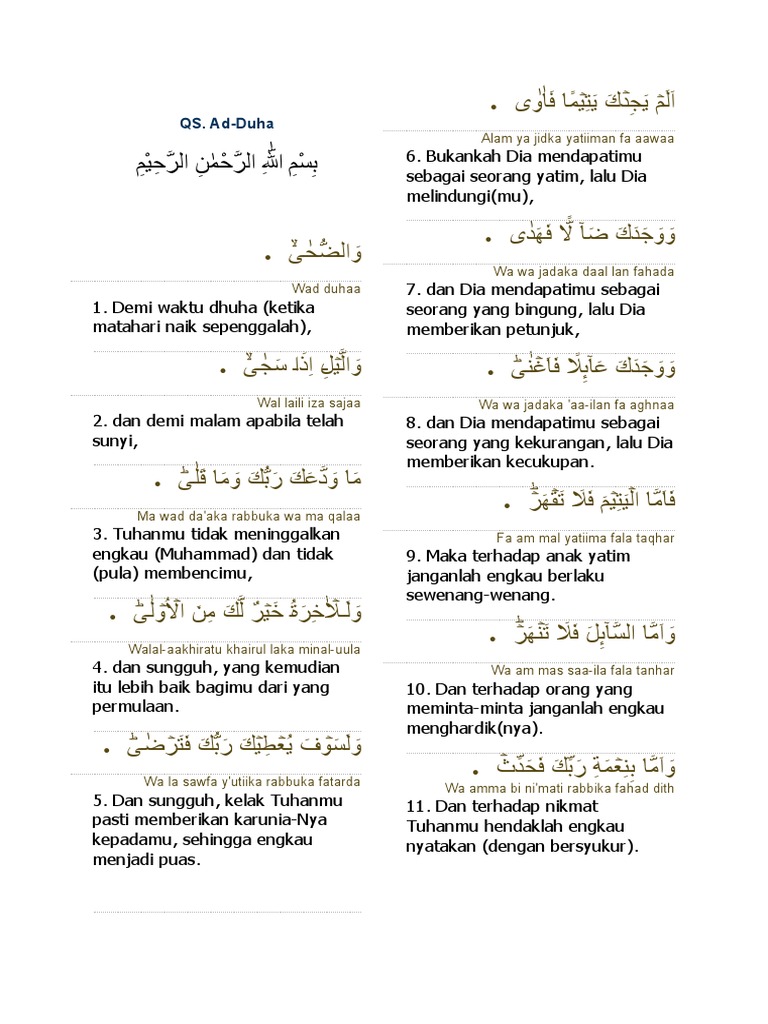 QS. Ad-Duha
بِسْمِ اللّٰهِ الرَّحْمٰنِ الرَّحِيْمِ
وَالضُّحٰىۙ .
Wad duhaa
1. Demi waktu dhuha (ketika
matahari naik sepenggalah),
وَالَّيْلِ اِذَا سَجٰىۙ .
Wal laili iza sajaa
2. dan demi malam apabila telah
sunyi,
مَا وَدَّعَكَ رَبُّكَ وَمَا قَلٰىۗ .
Ma wad da'aka rabbuka wa ma qalaa
3. Tuhanmu tidak meninggalkan
engkau (Muhammad) dan tidak
(pula) membencimu,
وَلَـلْاٰخِرَةُ خَيْرٌ لَّكَ مِنَ الْاُوْلٰىۗ .
Walal-aakhiratu khairul laka minal-uula
4. dan sungguh, yang kemudian
itu lebih baik bagimu dari yang
permulaan.
وَلَسَوْفَ يُعْطِيْكَ رَبُّكَ فَتَرْضٰىۗ .
Wa la sawfa y'utiika rabbuka fatarda
5. Dan sungguh, kelak Tuhanmu
pasti memberikan karunia-Nya
kepadamu, sehingga engkau
menjadi puas.
اَلَمْ يَجِدْكَ يَتِيْمًا فَاٰوٰى .
Alam ya jidka yatiiman fa aawaa
6. Bukankah Dia mendapatimu
sebagai seorang yatim, lalu Dia
melindungi(mu),
وَوَجَدَكَ ضَاۤ لًّا فَهَدٰى .
Wa wa jadaka daal lan fahada
7. dan Dia mendapatimu sebagai
seorang yang bingung, lalu Dia
memberikan petunjuk,
وَوَجَدَكَ عَاۤىِٕلًا فَاَغْنٰىۗ .
Wa wa jadaka 'aa-ilan fa aghnaa
8. dan Dia mendapatimu sebagai
seorang yang kekurangan, lalu Dia
memberikan kecukupan.
فَاَمَّا الْيَتِيْمَ فَلَا تَقْهَرْۗ .
Fa am mal yatiima fala taqhar
9. Maka terhadap anak yatim
janganlah engkau berlaku
sewenang-wenang.
وَاَمَّا السَّاۤىِٕلَ فَلَا تَنْهَرْۗ .
Wa am mas saa-ila fala tanhar
10. Dan terhadap orang yang
meminta-minta janganlah engkau
menghardik(nya).
وَاَمَّا بِنِعْمَةِ رَبِّكَ فَحَدِّثْ .
Wa amma bi ni'mati rabbika fahad dith
11. Dan terhadap nikmat
Tuhanmu hendaklah engkau
nyatakan (dengan bersyukur).